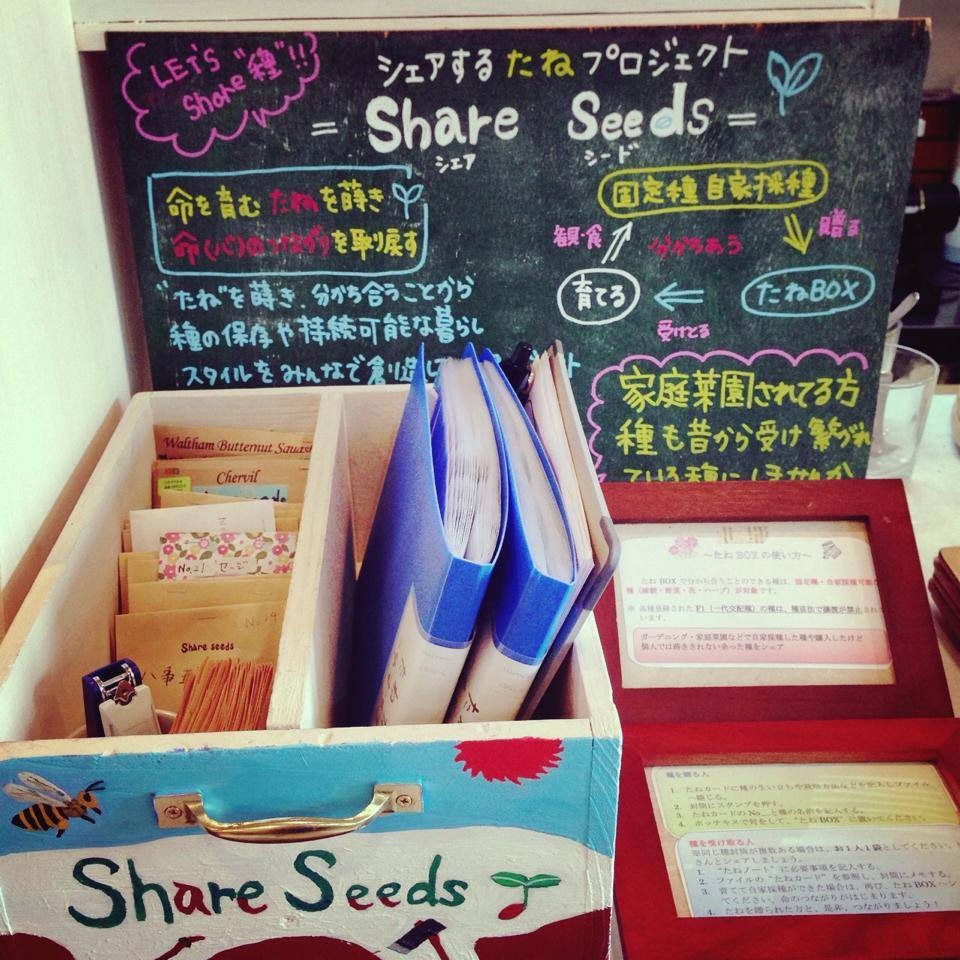 LET'S "種"!!
Share
シェアする たね プロジェクト
= Share Seeds =
シェア シード
命を育む たねを蒔き
命(パ)のつながりを取り戻す
"たね"を蒔き、分かち合うことから
種の保存や持続可能な暮らし
スタイルをみんなで創造
固定種 自家採種
贈る
たねBOX
受けとる
育てる
観・食
分かちあう
家庭菜園されてる方
種も昔から受け繋がれ
ている種にしませんか
Waltham Butternut Squash
Chervil
No.21 セージ
No.19
Share seeds
Share Seeds
~たね BOX の使い方~
たね BOX で分かち合うことのできる種は、固定種・自家採種可能な
種（雑穀・野菜・花・ハーブ）が対象です。
※ 品種登録された F1（一代交配種）の種は、種苗法で譲渡が禁止され
います。
ガーデニング・家庭菜園などで自家採種した種や購入したけど
個人では蒔ききれない余った種をシェア
種を贈る人
1. たねカードに種の生い立ちや栽培方法などを記入しファイル
へ綴じる。
2. 封筒にスタンプを押す。
3. たねカードの No.__と種の名前を記入する。
4. ホッチキスで封をして、"たね BOX" に置いてください。
種を受け取る人
※同じ種封筒が複数ある場合は、お 1 人 1 袋としてください。
さんとシェアしましょう。
1. "たねノート" に必要事項を記入する。
2. ファイルの "たねカード" を参照し、封筒にメモする。
3. 育てて自家採種ができた場合は、再び、たね BOX へシ
てください。命のつながりがはじまります。
4. たねを贈られた方と、是非、つながりましょう！